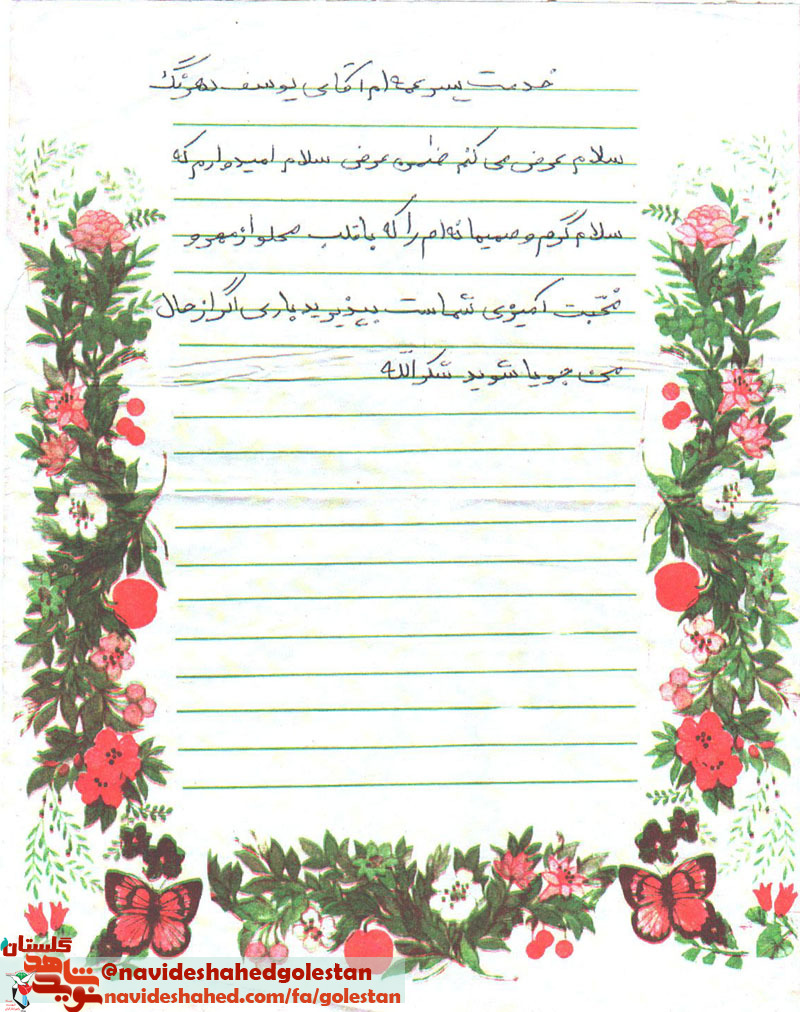 خدمت پسر عمه ام آقای یوسف بهرنگ
سلام عرض می کنم ضمن عرض سلام امیدوارم که
سلام گرم و صمیمانه ام را که با قلب مملو از مهر و
محبت آمیزی شماست بپذیرید باری اگر از حال
من جویا شوید شکرالله
گلستان
نوید شاهد
@navideshahedgolestan
navideshahed.com/fa/golestan